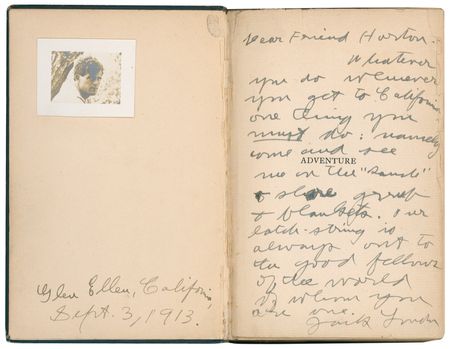 Glen Ellen, California,
Sept. 3, 1913.
Dear Friend Horton:
Whatever
you do whenever
you get to California
one thing you
must do: namely
come and see
ADVENTURE
me on the "Ranch"
& share grub
& blankets. Our
latch-string is
always out to
the good fellows
of the world
of whom you
are one.
Jack London